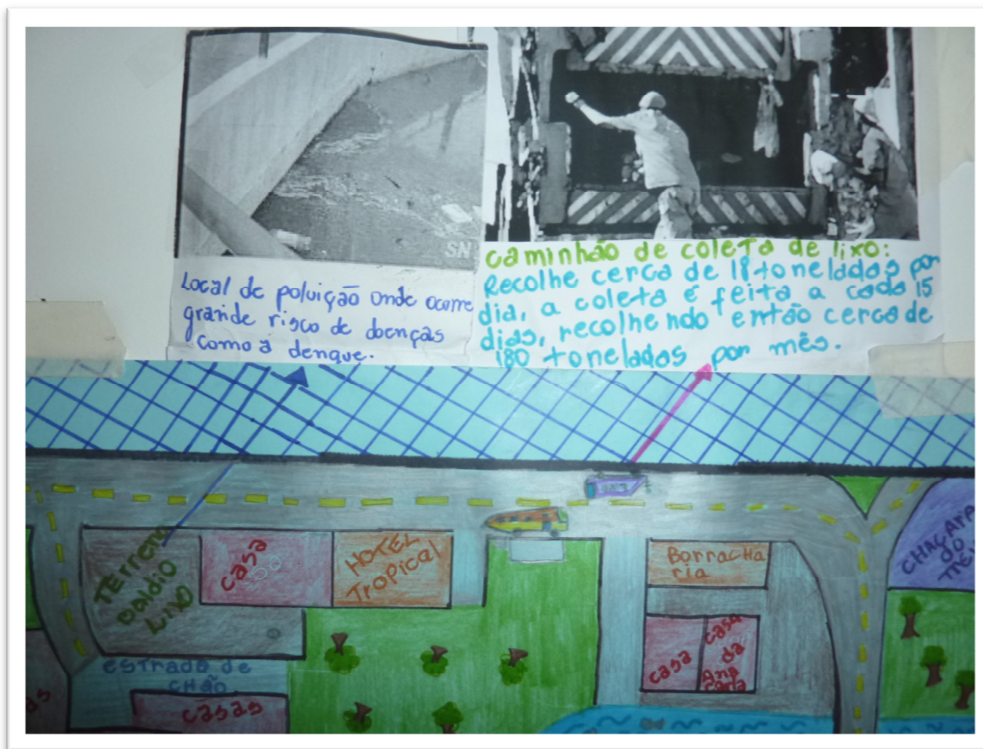 SN
Local de poluição onde ocorre
grande risco de doenças
como a dengue.
caminhão de coleta de lixo:
Recolhe cerca de 18 toneladas por
dia, a coleta é feita a cada 15
dias, recolhendo então cerca de
180 toneladas por mês.
Terreno
baldio
LIXO
casa
HOTEL
Tropical
Borracha
ria
CHAÇARA
do
casa
casa
da
Ana
estrada de
CHÃO
casas